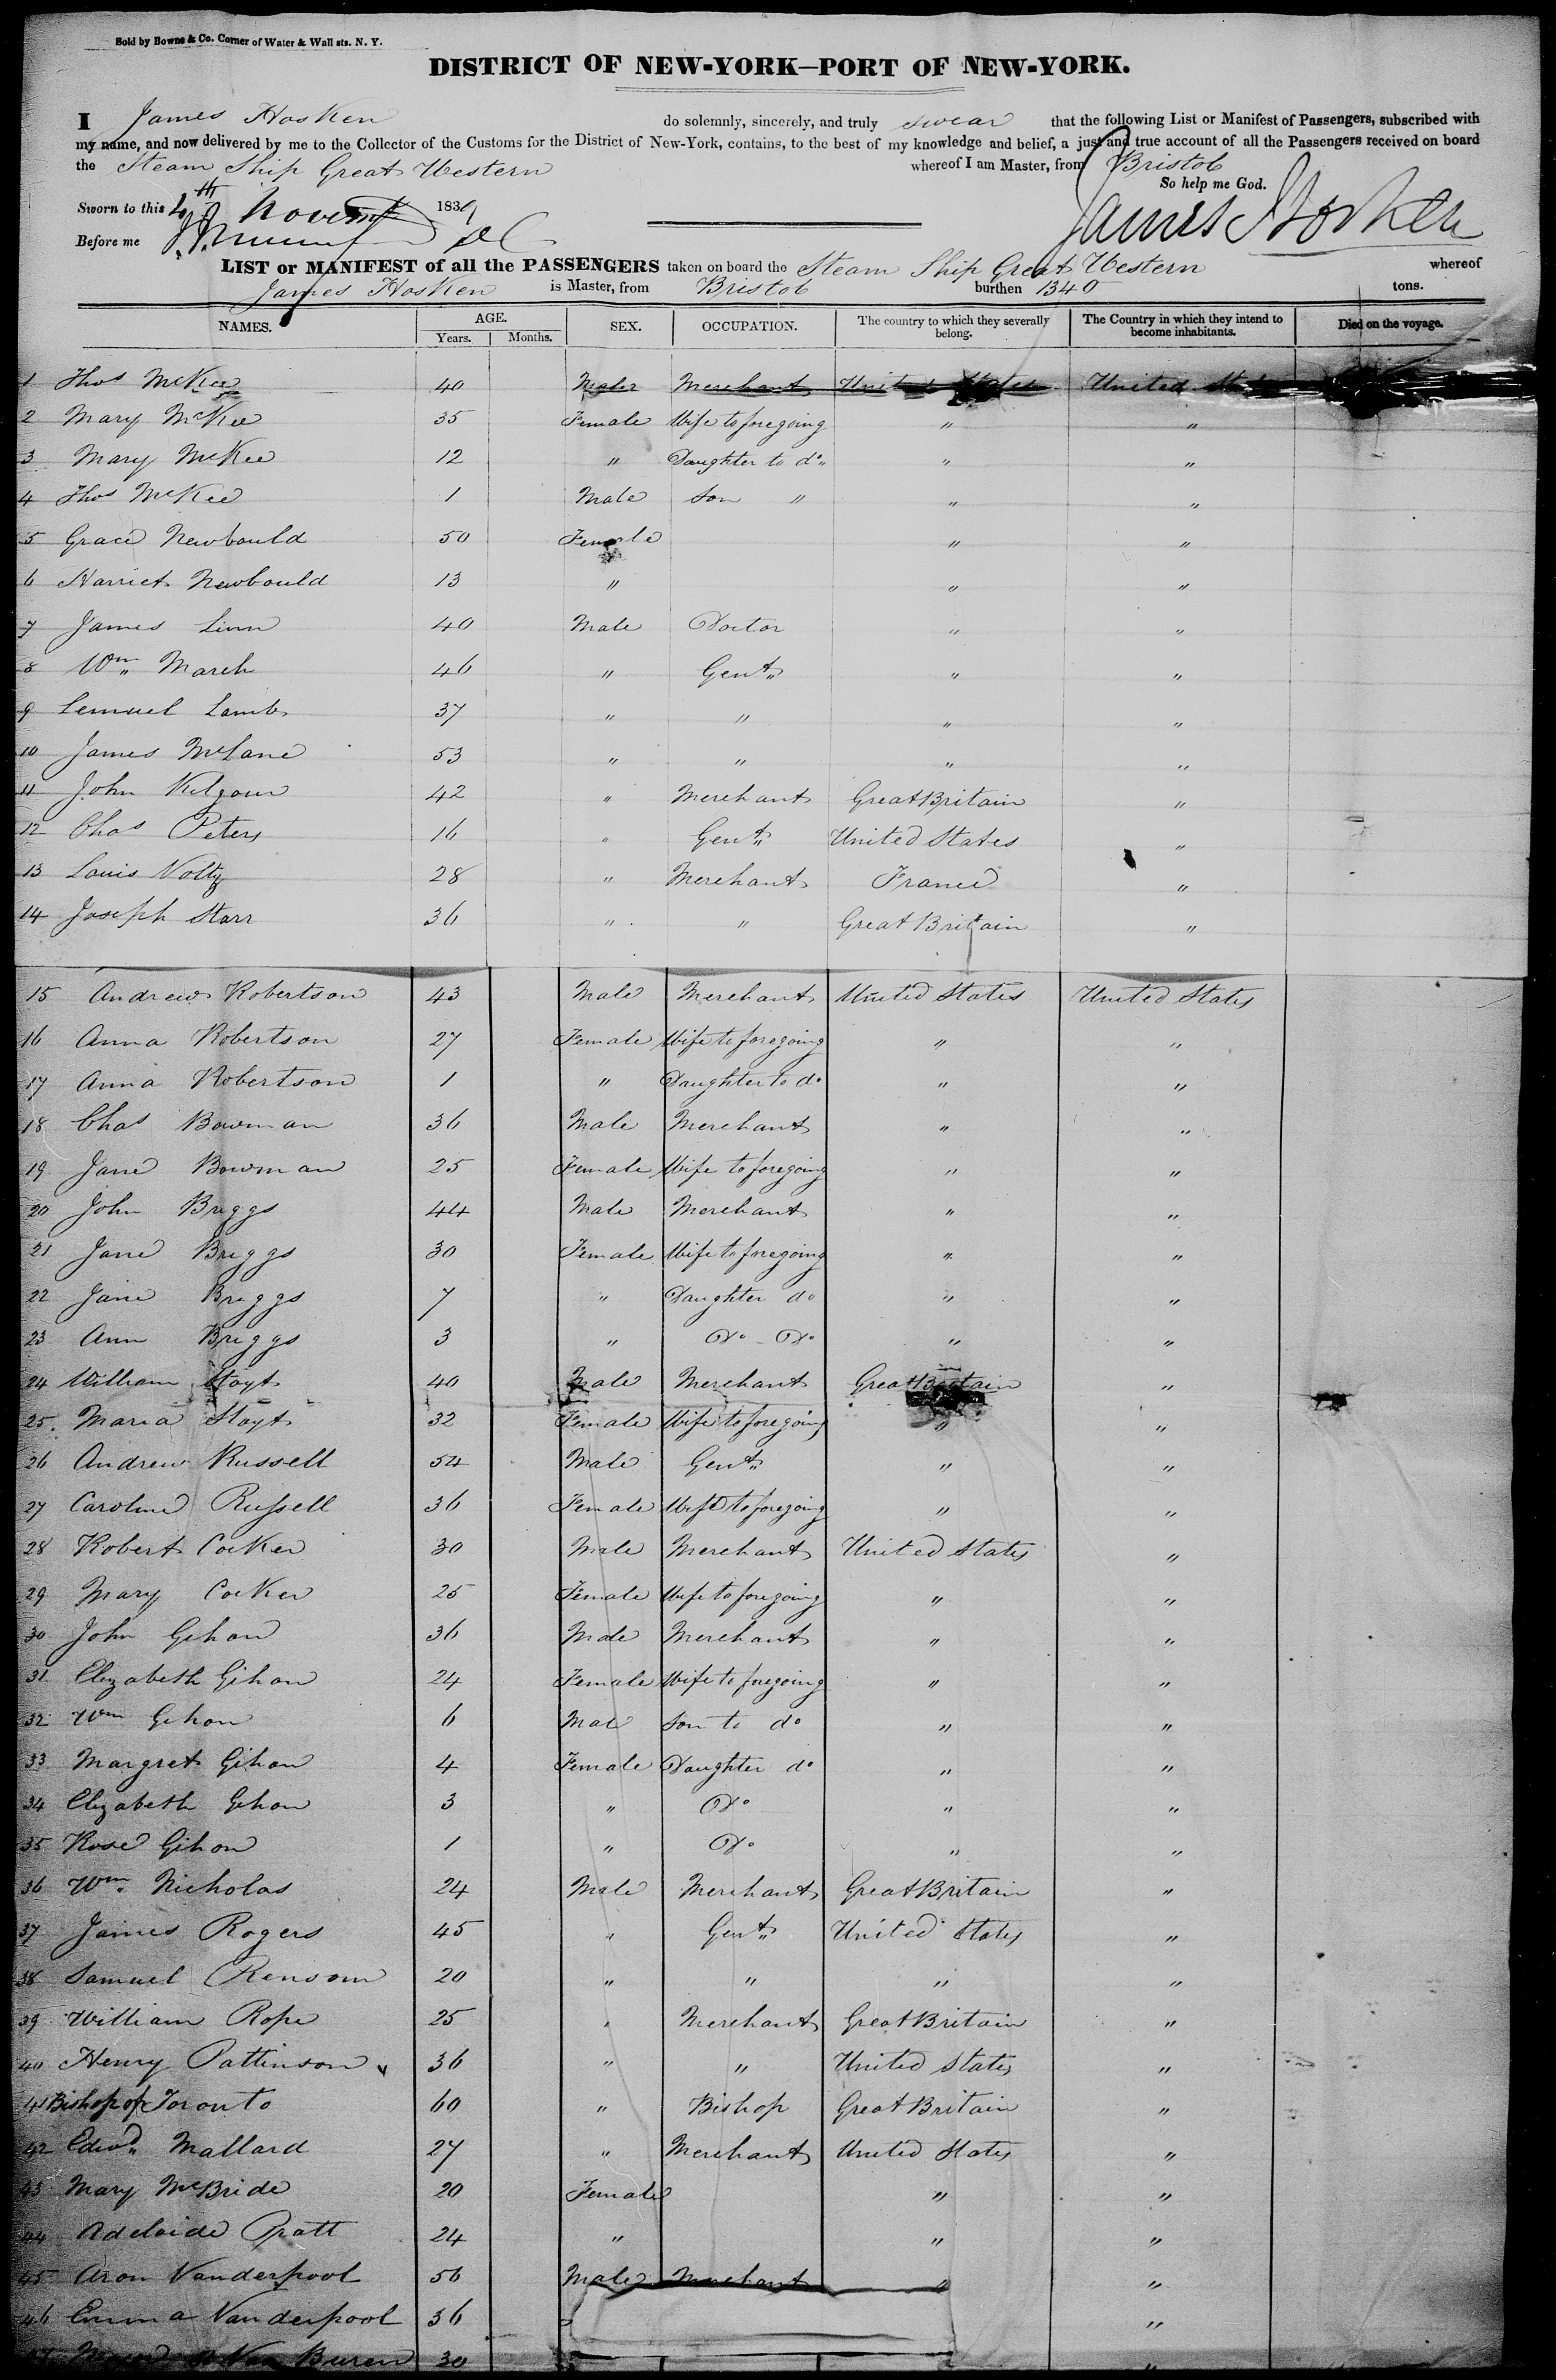 Sold by Bowne & Co. Corner of Water & Wall sts. N. Y.
DISTRICT OF NEW-YORK—PORT OF NEW-YORK.
I James Hosken do solemnly, sincerely, and truly swear that the following List or Manifest of Passengers, subscribed with
my name, and now delivered by me to the Collector of the Customs for the District of New-York, contains, to the best of my knowledge and belief, a just and true account of all the Passengers received on board
the Steam Ship Great Western whereof I am Master, from Bristol
So help me God.
Sworn to this 4th 1839
James Hosken
Before me
LIST or MANIFEST of all the PASSENGERS taken on board the Steam Ship Great Western whereof
James Hosken is Master, from Bristol burthen 1340 tons.
NAMES. AGE. SEX. OCCUPATION. The country to which they severally belong. The Country in which they intend to become inhabitants. Died on the voyage.
Years. Months.
1 Thos McKee 40 Male Merchant United States United
2 Mary McKee 35 Female Wife to foregoing " "
3 Mary McKee 12 " Daughter to do " "
4 Thos McKee 1 Male Son " " "
5 Grace Newbould 50 Female " "
6 Harriet Newbould 13 " " "
7 James Linn 40 Male Doctor " "
8 Wm March 46 " Gent " "
9 Lemuel Lamb 37 " " " "
10 James McLane 53 " " " "
11 John Kilgour 42 " Merchant Great Britain "
12 Chas Peters 16 " Gent United States "
13 Louis 28 " Merchant France "
14 Joseph Starr 36 " " Great Britain "
15 Andrew Robertson 43 Male Merchant United States United States
16 Anna Robertson 27 Female Wife to foregoing " "
17 Anna Robertson 1 " Daughter to do " "
18 Chas Bowman 36 Male Merchant " "
19 Jane Bowman 25 Female Wife to foregoing " "
20 John Briggs 44 Male Merchant " "
21 Jane Briggs 30 Female Wife to foregoing " "
22 Jane Briggs 7 " Daughter do " "
23 Ann Briggs 3 " Do Do " "
24 William 40 Male Merchant Great Britain "
25 Maria 32 Female Wife to foregoing " "
26 Andrew Russell 54 Male Gent " "
27 Caroline Russell 36 Female Wife to foregoing " "
28 Robert Cocker 30 Male Merchant United States "
29 Mary Cocker 25 Female Wife to foregoing " "
30 John Gihon 36 Male Merchant " "
31 Elizabeth Gihon 24 Female Wife to foregoing " "
32 Wm Gihon 6 Male Son to do " "
33 Margret Gihon 4 Female Daughter do " "
34 Elizabeth Gihon 3 " Do " "
35 Rose Gihon 1 " Do " "
36 Wm Nicholas 24 Male Merchant Great Britain "
37 James Rogers 45 " Gent United States "
38 Samuel Rensom 20 " " " "
39 William Rope 25 " Merchant Great Britain "
40 Henry Pattinson 36 " " United States "
41 Bishop of Toronto 60 " Bishop Great Britain "
42 Edwd Mallard 27 " Merchant United States "
43 Mary McBride 20 Female " "
44 Adelaide Pratt 24 " " "
45 Aron Vanderpool 56 Male Merchant " "
46 Emma Vanderpool 36 "
Van Buren 30 "